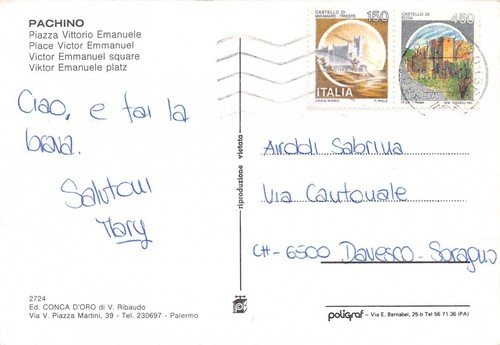 PACHINO
Piazza Vittorio Emanuele
Place Victor Emmanuel
Victor Emmanuel square
Viktor Emanuele platz
CASTELLO DI
MIRAMARE - TRIESTE
150
ITALIA
CASTELLO DI
450
Ciao, e fai la
brava.
Salutoni
Mary
riproduzione vietata
Airoldi Sabrina
Via Cantonale
CH-6500 Davesco-Soragno
2724
Ed. CONCA D'ORO di V. Ribaudo
Via V. Piazza Martini, 39 - Tel. 230697 - Palermo
poligraf – Via E. Bernabei, 25-b Tel 56 71 36 (PA)